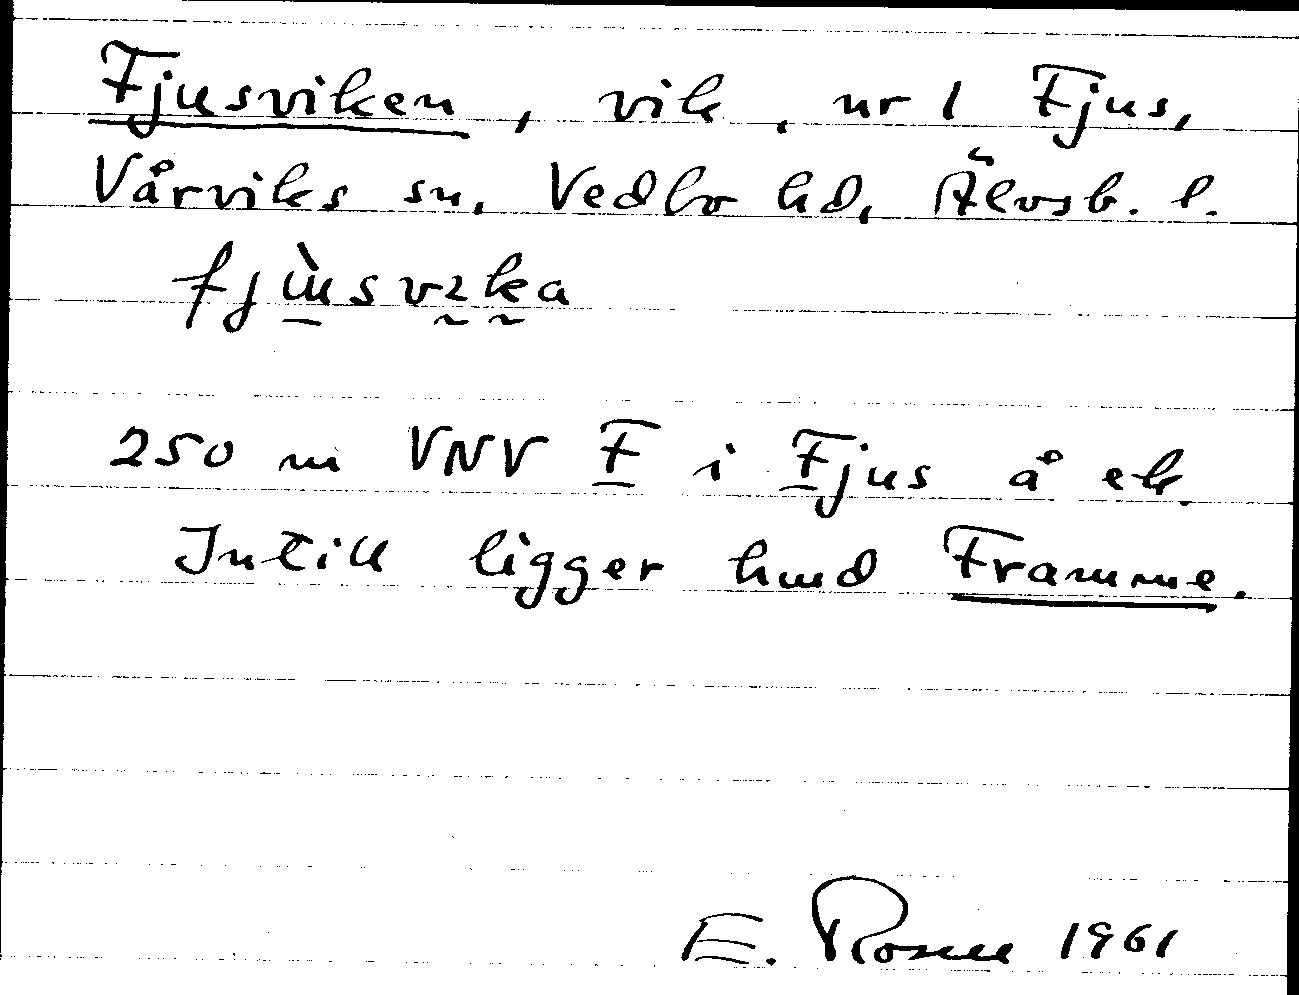 Fjusviken, vik, nr 1 Fjus,
Vårviks sn, Vedbo hd, Älvsb. l.
fjùsvıka
250 m VNV F i Fjus å ek.
Intill ligger hmd Framme.
E. Rosell 1961